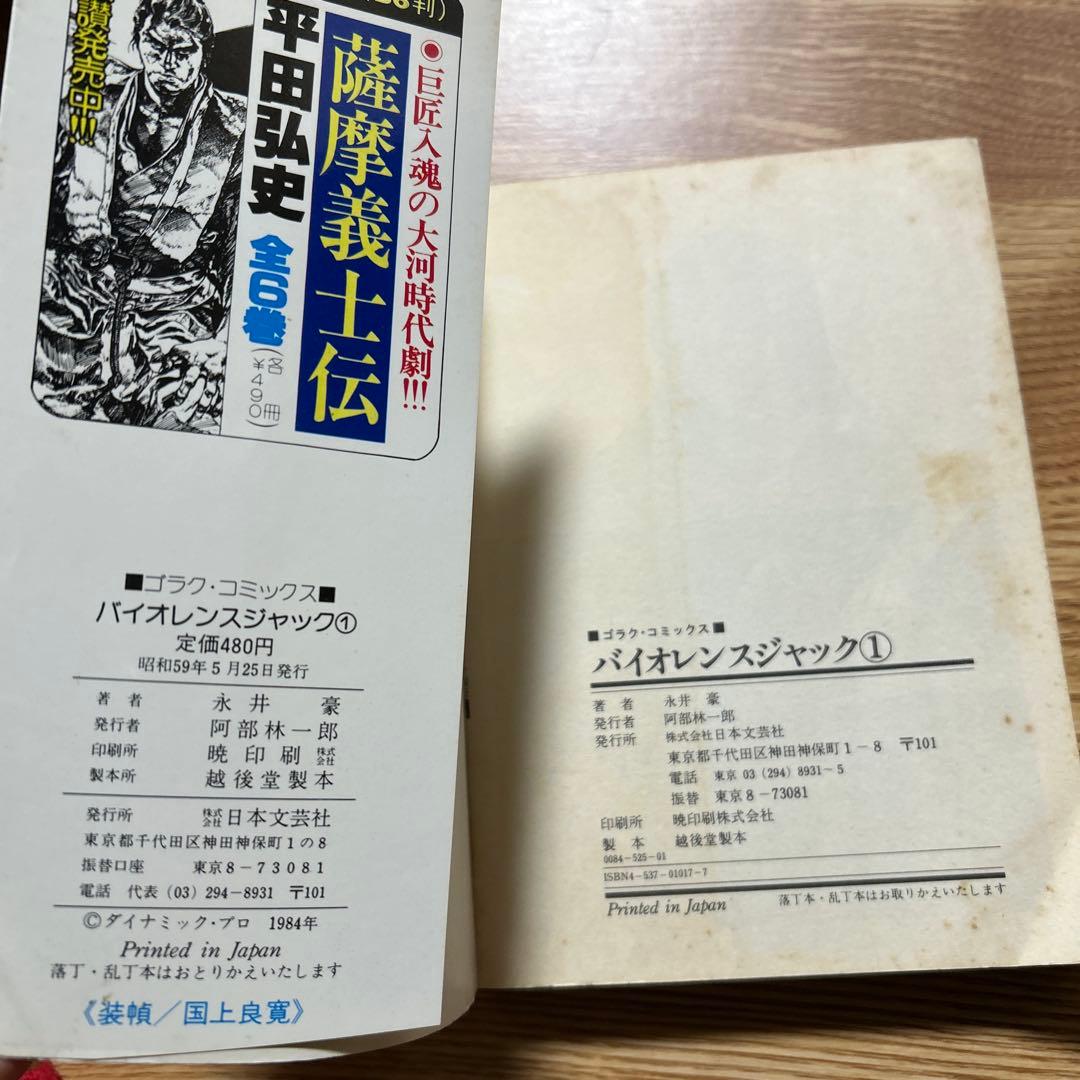 ●巨匠入魂の大河時代劇!!!
薩摩義士伝
平田弘史
全6巻
(各冊¥490)
讃発売中!!!
■ゴラク・コミックス■
バイオレンスジャック①
定価480円
昭和59年5月25日発行
著者 永井豪
発行者 阿部林一郎
印刷所 暁印刷株式会社
製本所 越後堂製本
発行所 株式会社日本文芸社
東京都千代田区神田神保町1の8
振替口座 東京8-73081
電話 代表(03)294-8931 〒101
©ダイナミック・プロ 1984年
Printed in Japan
落丁・乱丁本はおとりかえいたします
《装幀/国上良寛》
■ゴラク・コミックス■
バイオレンスジャック①
著者 永井豪
発行者 阿部林一郎
発行所 株式会社日本文芸社
東京都千代田区神田神保町1-8 〒101
電話 東京 03(294)8931~5
振替 東京8-73081
印刷所 暁印刷株式会社
製本 越後堂製本
0084-525-01
ISBN4-537-01017-7
Printed in Japan
落丁本・乱丁本はお取りかえいたします